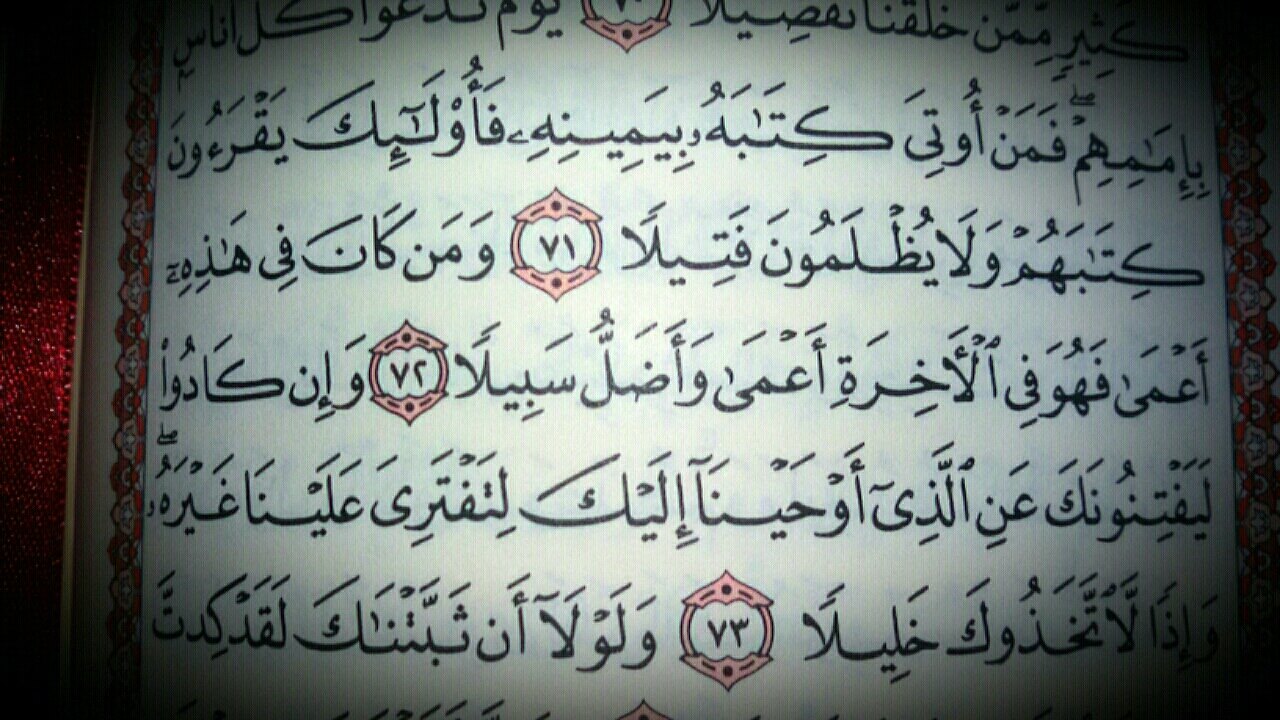 كَثِيرٍ مِّمَّنْ خَلَقْنَا تَفْضِيلًا ٧٠ يَوْمَ نَدْعُوا۟ كُلَّ أُنَاسٍۭ
بِإِمَـٰمِهِمْ ۖ فَمَنْ أُوتِىَ كِتَـٰبَهُۥ بِيَمِينِهِۦ فَأُو۟لَـٰٓئِكَ يَقْرَءُونَ
كِتَـٰبَهُمْ وَلَا يُظْلَمُونَ فَتِيلًا ٧١ وَمَن كَانَ فِى هَـٰذِهِۦٓ
أَعْمَىٰ فَهُوَ فِى ٱلْأَخِرَةِ أَعْمَىٰ وَأَضَلُّ سَبِيلًا ٧٢ وَإِن كَادُوا۟
لَيَفْتِنُونَكَ عَنِ ٱلَّذِىٓ أَوْحَيْنَآ إِلَيْكَ لِتَفْتَرِىَ عَلَيْنَا غَيْرَهُۥ ۖ
وَإِذًا لَّٱتَّخَذُوكَ خَلِيلًا ٧٣ وَلَوْلَآ أَن ثَبَّتْنَـٰكَ لَقَدْ كِدتَّ